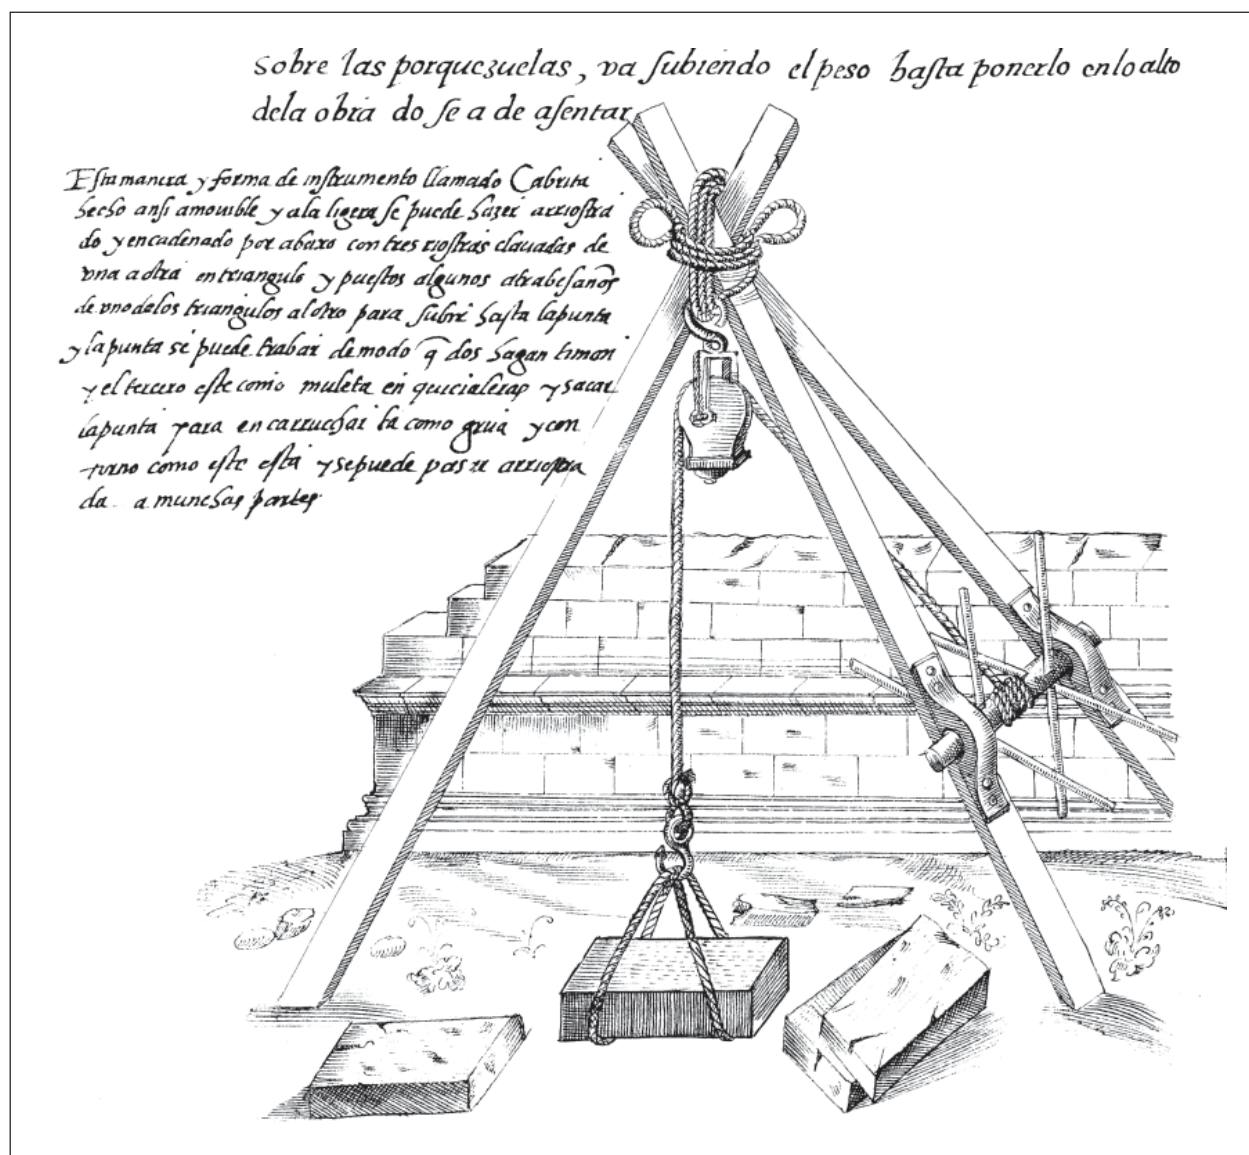 sobre las porquezuelas, va subiendo el peso hasta ponerlo en lo alto
dela obra do se a de asentar
Esta manera y forma de instrumento llamado Cabrita
hecho ansi amouible y ala ligera se puede hazer arriostra
do y encadenado por abaxo con tres riostras clauadas de
vna a otra en triangulo y puestos algunos atrabesaños
de vno delos triangulos al otro para subir hasta lapunta
y lapunta se puede trabar de modo q̃ dos hagan timon
y el tercero este como muleta en quicialeras y sacar
lapunta para encarruchar la como grua y con
torno como este esta y sepuede pasar arriostra
da a munchas partes